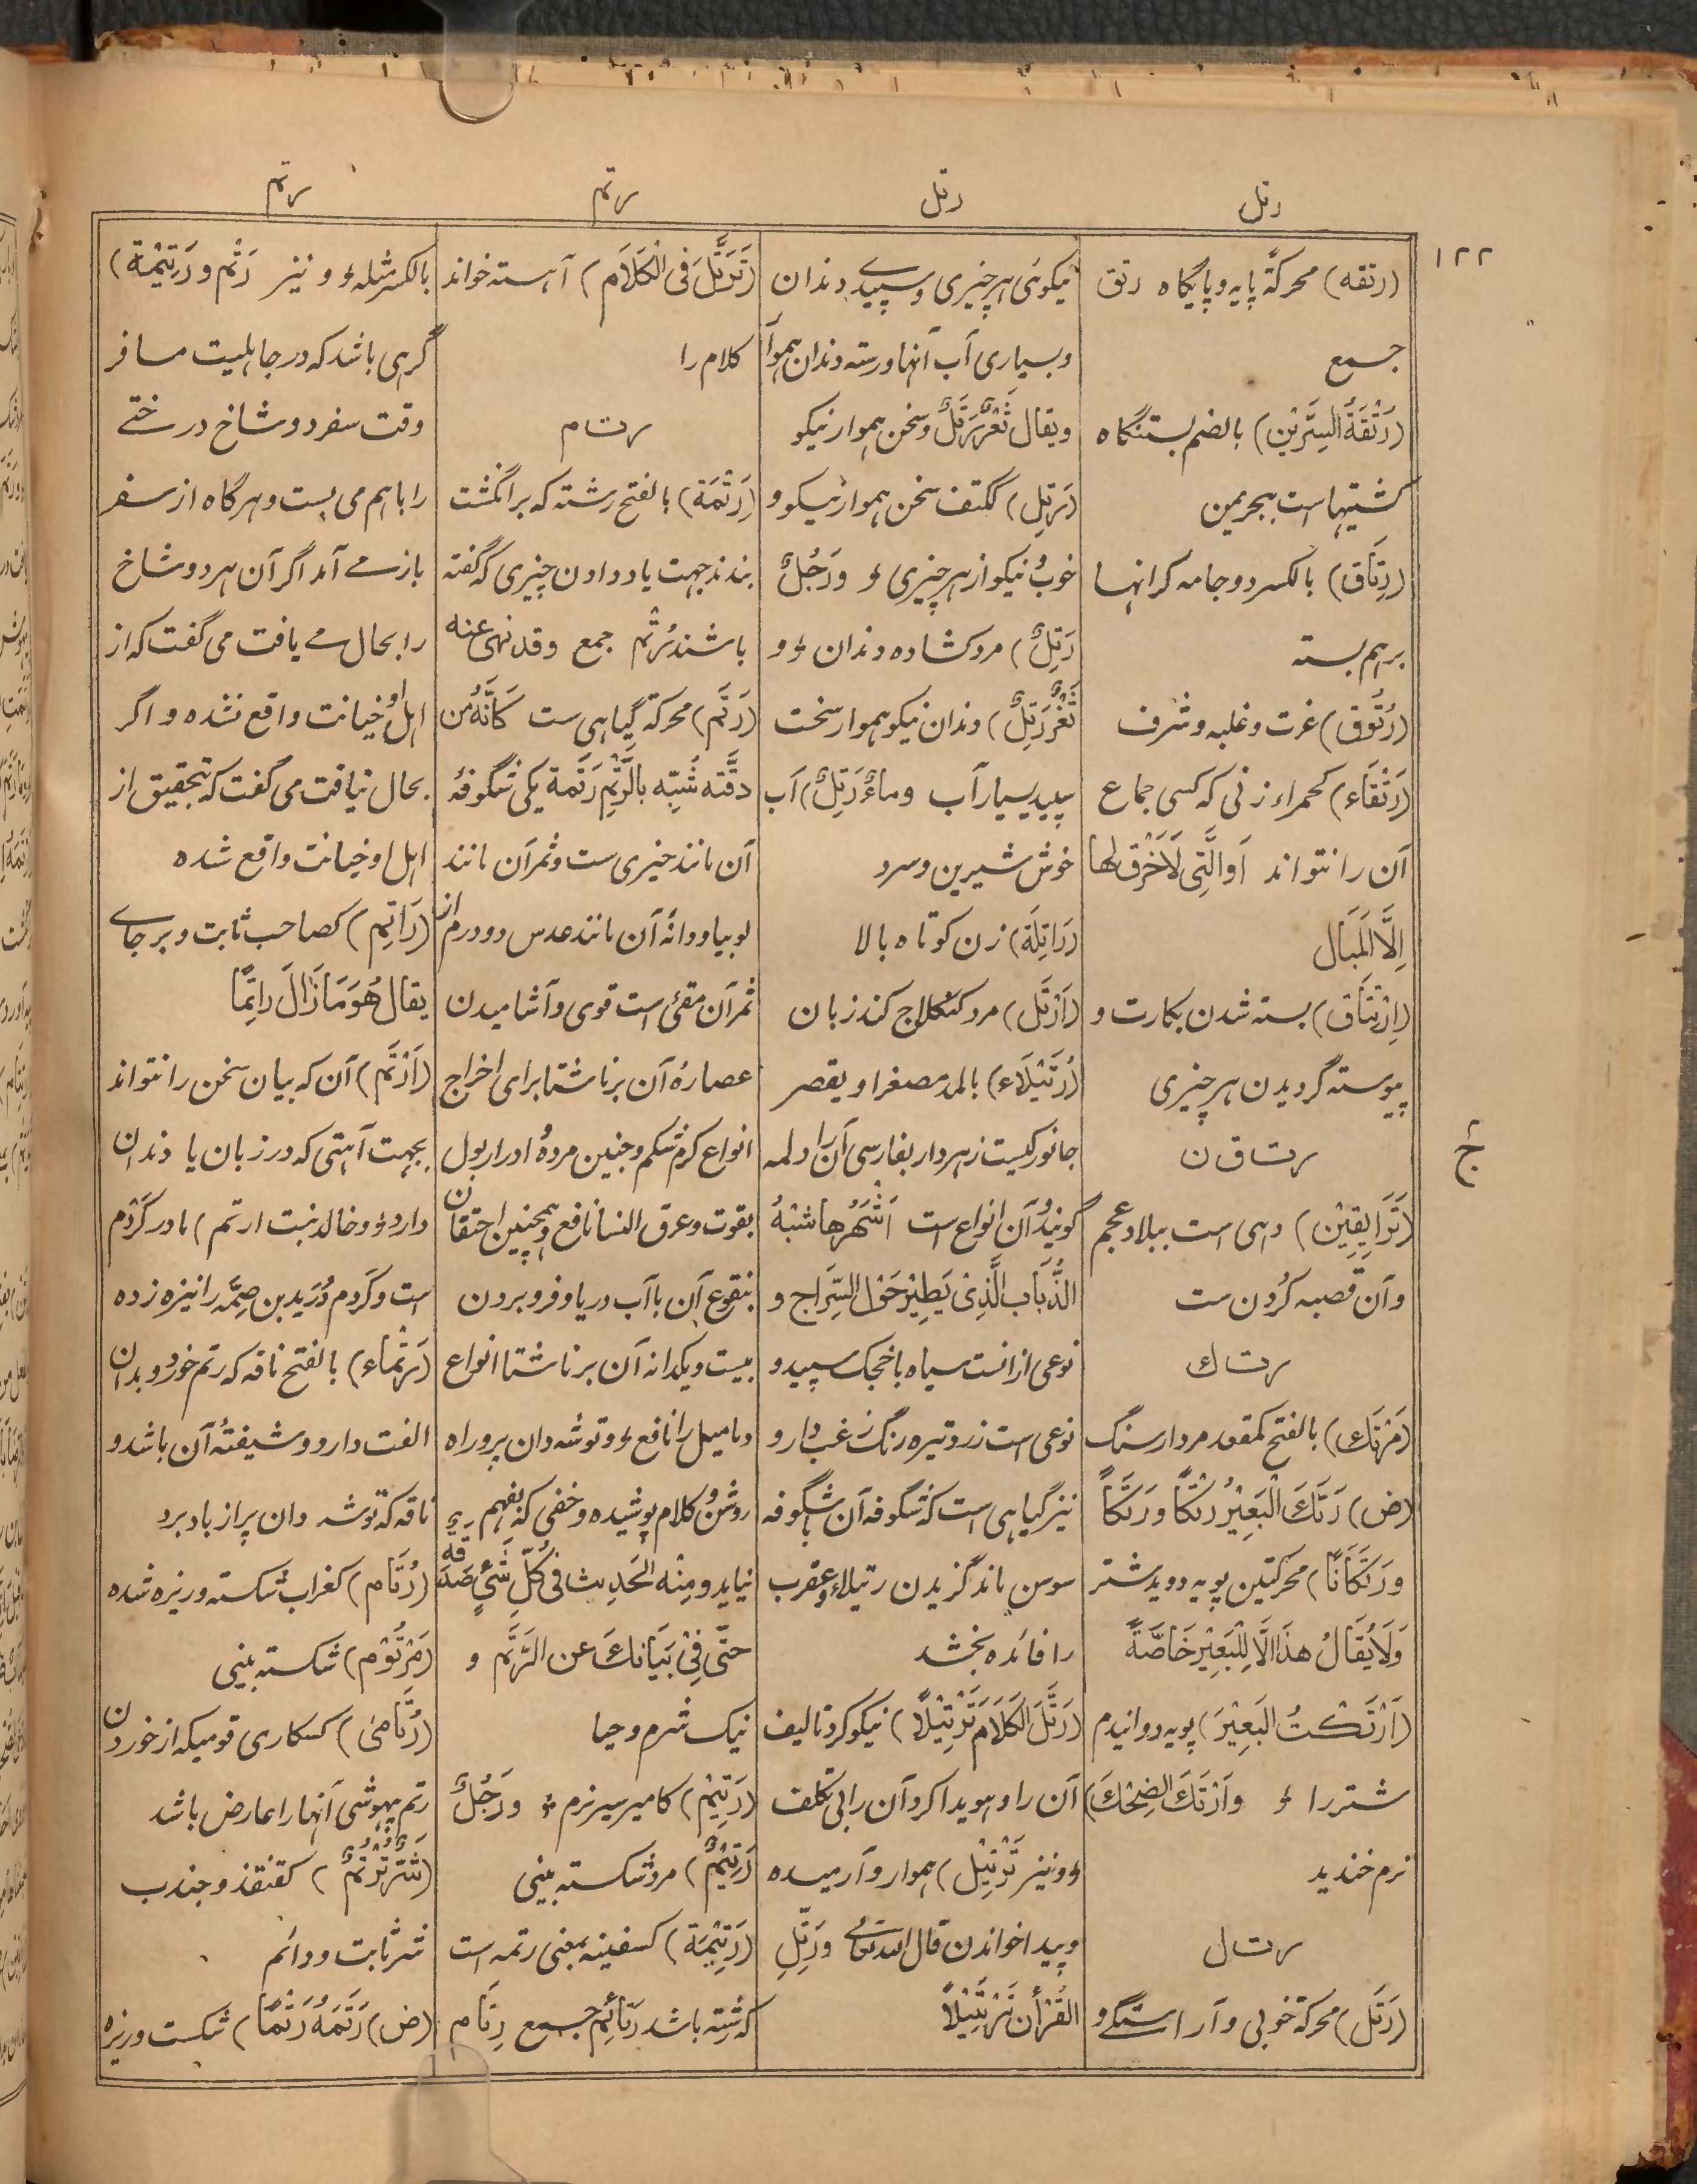 رتل
رتل
رتم
رتم
۱۲۲
(رتقه) محرکةً پایه و پایگاه رتق
جمع
(رُتْقَةُ السِّرَّیْن) بالضم بستنگاه
کشتیها است ببحر یمن
(رِتَاق) بالکسر دو جامه که کرانها
برهم بسته
(رُتُوق) عزت و غلبه و شرف
(رَتْقَاء) کحمراء زنی که کسی جماع
آن را نتواند اَو الَّتِی لَاخَرْقَ لها
اِلَّا الْمَبَال
(اِرْتِتَاق) بسته شدن بکارت و
پیوسته گردیدن هر چیزی
ر ت ا ق ن
(رَتَوَایِقِیْن) دهی است ببلاد عجم
و آن قصبه کُردن ست
ر ت ك
(مَرْتَك) بالفتح کمقعد مردار سنگ
(ض) رَتَكَ الْبَعِیْرُ رَتْكًا و رَتَكًا
و رَتَكَانًا) محرکتین پویه دوید شتر
وَلَا یُقَالُ هذَا اِلَّا لِلْبَعِیْرِ خَاصَّةً
(اَرْتَكْتُ الْبَعِیْرَ) پویه دوانیدم
شتر را و وَاَرْتَكَ الضِحْكَ)
نرم خندید
ر ت ل
(رَتَل) محرکةً خوبی و آراستگی و
نیکوئی هر چیزی و سپیدے دندان
و بسیاری آب آنها و رسته دندان هموار
و یقال ثَغْرٌ رَتَلٌ و سخن هموار نیکو
(رَتِل) ککتف سخن هموار نیکو و
خوب و نیکو از هر چیزی و وَرَجُلٌ
رَتِلٌ) مرد کشاده دندان و و
ثَغْرٌ رَتِلٌ) دندان نیکو هموار سخت
سپید بسیار آب و ماءٌ رَتِلٌ) آب
خوش شیرین و سرد
(رَاتِلَة) زن کوتاه بالا
(اَرْتَل) مرد کشکلاج کند زبان
(رُتَیْلَاء) بالمد مصغرا و یقصر
جانورکیست زهردار بفارسی آن را دلمه
گویند و آن انواع است اَشْهَرُها شبْهُ
الذُّبَاب الَّذِیْ یَطِیْرُ حَوْلَ السِّرَاج و
نوعی از انست سیاه با خجک سپید و
نوعی است زرد تیره رنگ زغب دار و
نیز گیاهی است که شگوفه آن بشگوفه
سوسن ماند گزیدن رتیلاء و عقرب
را فائده بخشد
(رَتَّلَ الْكَلَامَ تَرْتِیْلًا) نیکو کرد تالیف
آن را و هویدا کرد آن را بی تکلف
و و نیز تَرْتِیْل) هموار و آرمیده
و پیدا خواندن قال الله تعالی وَرَتِّلِ
الْقُرْاٰنَ تَرْتِیْلًا
(تَرَتَّلَ فِی الْكَلَامِ) آهسته خواند
کلام را
ر ت م
(رَتْمَة) بالفتح رشته که بر انگشت
بندند جهت یاد دادن چیزی که گفته
باشند رُتْم جمع وقد نهی عنه
(رَتَم) محرکة گیاهی ست کَانَّهُ مِن
دقَّته شُبِّه بالرَّتْمِ رَتَمة یکی شگوفهٔ
آن مانند خیری ست و ثمر آن مانند
لوبیا و دانهٔ آن مانند عدس دو درم از
ثمر آن مقئی است قوی و آشامیدن
عصارهٔ آن برناشتا برای اخراج
انواع کرم شکم و جنین مرده و ادرار بول
بقوت و عرق النسا نافع و همچنین احتقان
بنقوع آن با آب دریا و فرو بردن
بیست و یکدانه آن برناشتا انواع
دمامیل را نافع و و توشه دان پر و راه
روشن و کلام پوشیده و خفی که بفهم
نیاید و مِنْه الْحَدِیث فِی كُلِّ شَیْءٍ صَدَقَةٌ
حتّٰی فِیْ بَیَانِكَ عن الرَّتَم و
نیک شرم و حیا
(رَتِیْم) کامیر سیر نرم و وَرَجُلٌ
رَتِیْمٌ) مرد شکسته بینی
(رَتِیْمَة) کسفینه بمعنی رتمه است
که گذشته باشد رَتَائِم جمع رِتَام
بالکسر مثله و و نیز رَتْم و رَتِیْمَة)
گرهی باشد که در جاهلیت مسافر
وقت سفر دو شاخ درختے
را باهم می بست و هرگاه از سفر
باز مے آمد اگر آن هر دو شاخ
را بحال مے یافت می گفت که از
اهل او خیانت واقع نشده و اگر
بحال نیافت می گفت که بتحقیق از
اهل او خیانت واقع شده
(رَاتِم) کصاحب ثابت و برجاے
یقال هُوَ مَازَالَ رَاتِمًا
(اَرْتَم) آن که بیان سخن را نتواند
بجهت آفتی که در زبان یا دندان
دارد و و خالد بنت ارتم) مادر کَرْدَم
است و کردم دُرَید بن صِمَّه را نیزه زده
(رَتْمَاء) بالفتح ناقه که رتم خورد و بدان
الفت دارد و شیفتهٔ آن باشد و
ناقه که توشه دان پر از باد برد
(رُتَام) کغراب شکسته و ریزه شده
(مَرْتُوْم) شکسته بینی
(رُتَامیٰ) کسکاری قومیکه از خوردن
رتم بیهوشی آنها را عارض باشد
(شَرٌّ تُرْتُمٌ) کقنفذ و جندب
شر ثابت و دائم
(ض) رَتَمَهُ رَتْمًا) شکست و ریزه